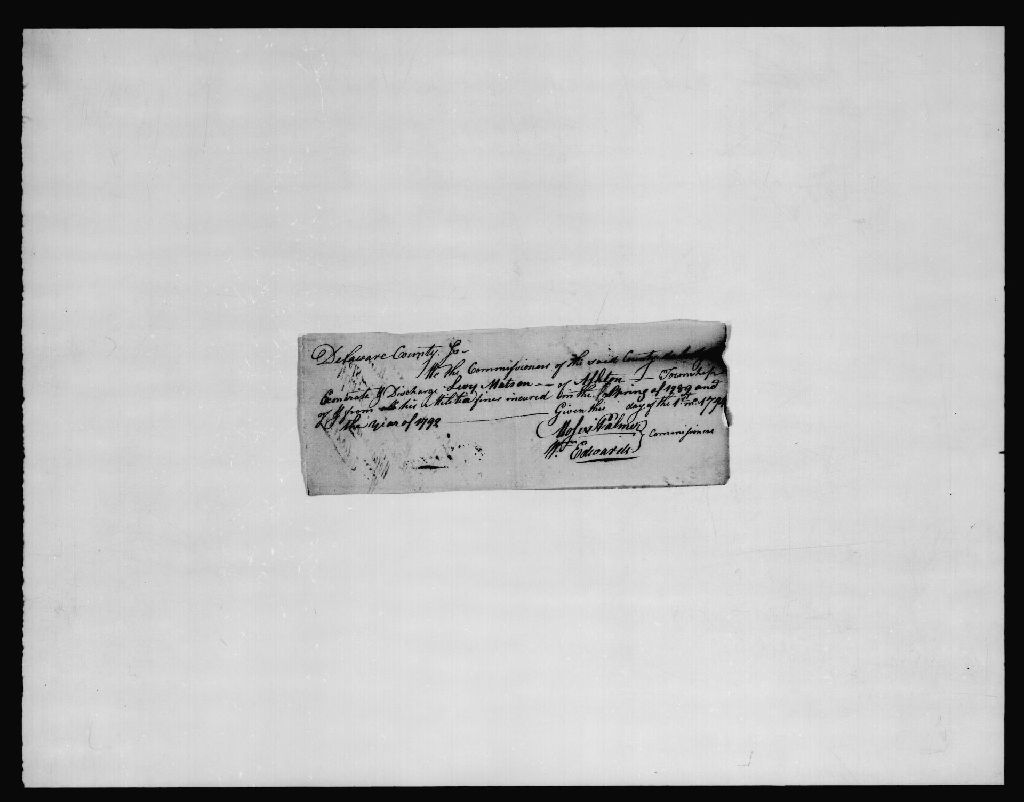 Delaware County Ss
We the Commissioners of the said County do hereby
Exonerate & Discharge Levy Matson — of Ashton — Township
of & from all his Militia fines incured in the Spring of 1789 and
the year of 1792 — Given this day of the 1st mo. 1794
Moses Palmer
Wm Edwards
Commissioners